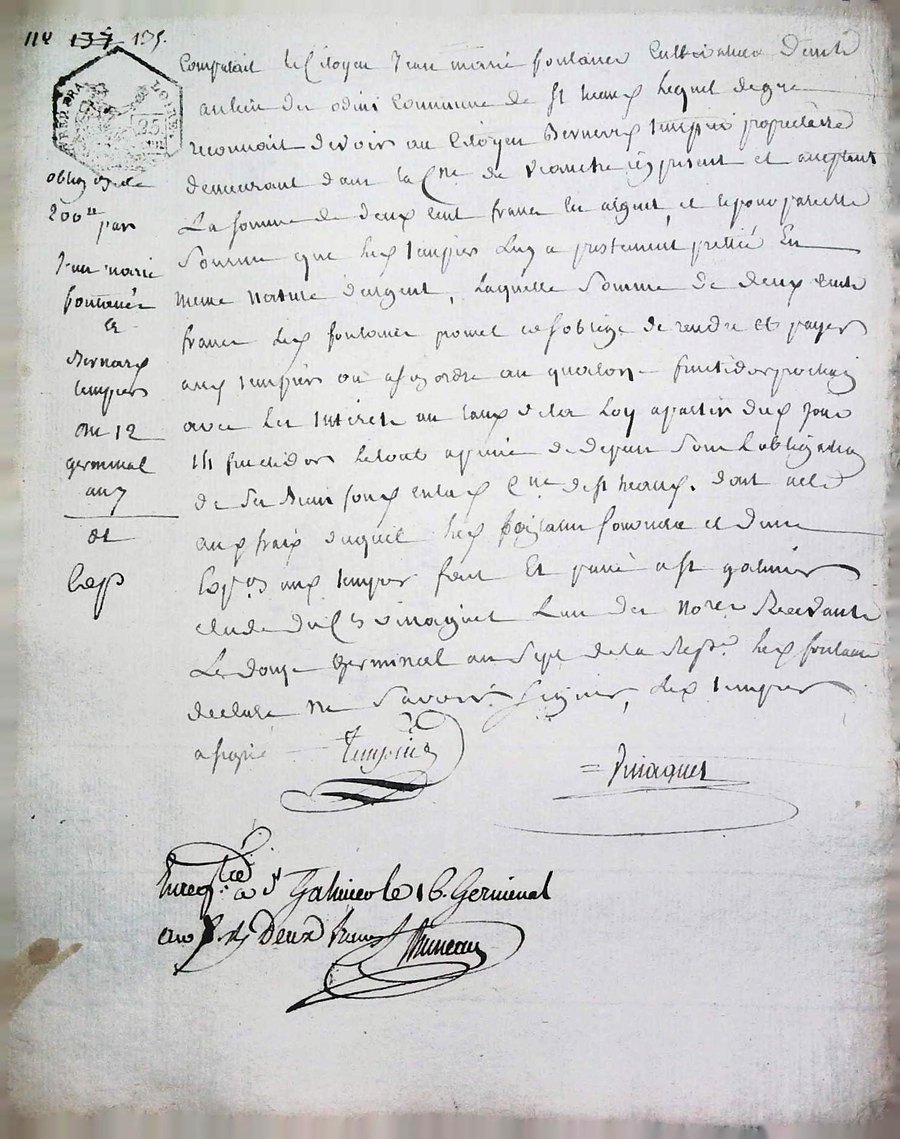 114 137 135.
LOIRE
25
oblig on de
200 tt
par
Jean marie
fontanés
a
Bernard
tempier
du 12
germinal
an 7
et
Exp
Comparait le Citoyen Jean marie fontanés Cultivateur
au lieu des commune de St heand lequel de gré
reconnait devoir au Citoyen Bernard tempier propriétaire
demeurant dans la Cne de icy présent et acceptant
La somme de deux cent francs en argent, et pareille
Somme que led tempier luy a prettée En
meme nature d'argent, Laquelle Somme de deux cents
francs led fontanés promet et soblige de rendre et payer
aud tempier ou a son ordre au quatorze fructidor prochain
avec les Interets au taux de la Loy a partir dud jour
14 fructidor Letout a peine de depens Sous L'obligation
de Ses Biens en lad Cne de St heand. dont acte
aux frais duquel led et d'une
aud tempier fait Et passé a St galmier
Etude du Cen Vinagnet L'un des nores
Le douze Germinal an Sept de la Rep. led fontanés
declare ne Savoir Signer, led tempier
a signé
tempier
= Vinagnet
Enregistré a St Galmier le 16. Germinal
an 7. Deux francs